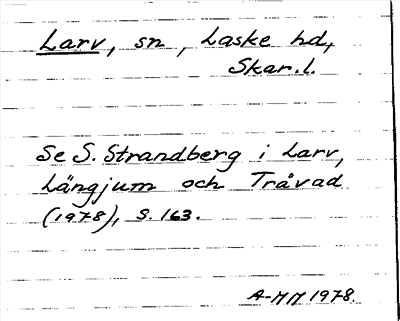 Larv, sn, Laske hd,
Skar.l.
Se S. Strandberg i Larv,
Längjum och Tråvad
(1978), s. 163.
A-MM 1978.